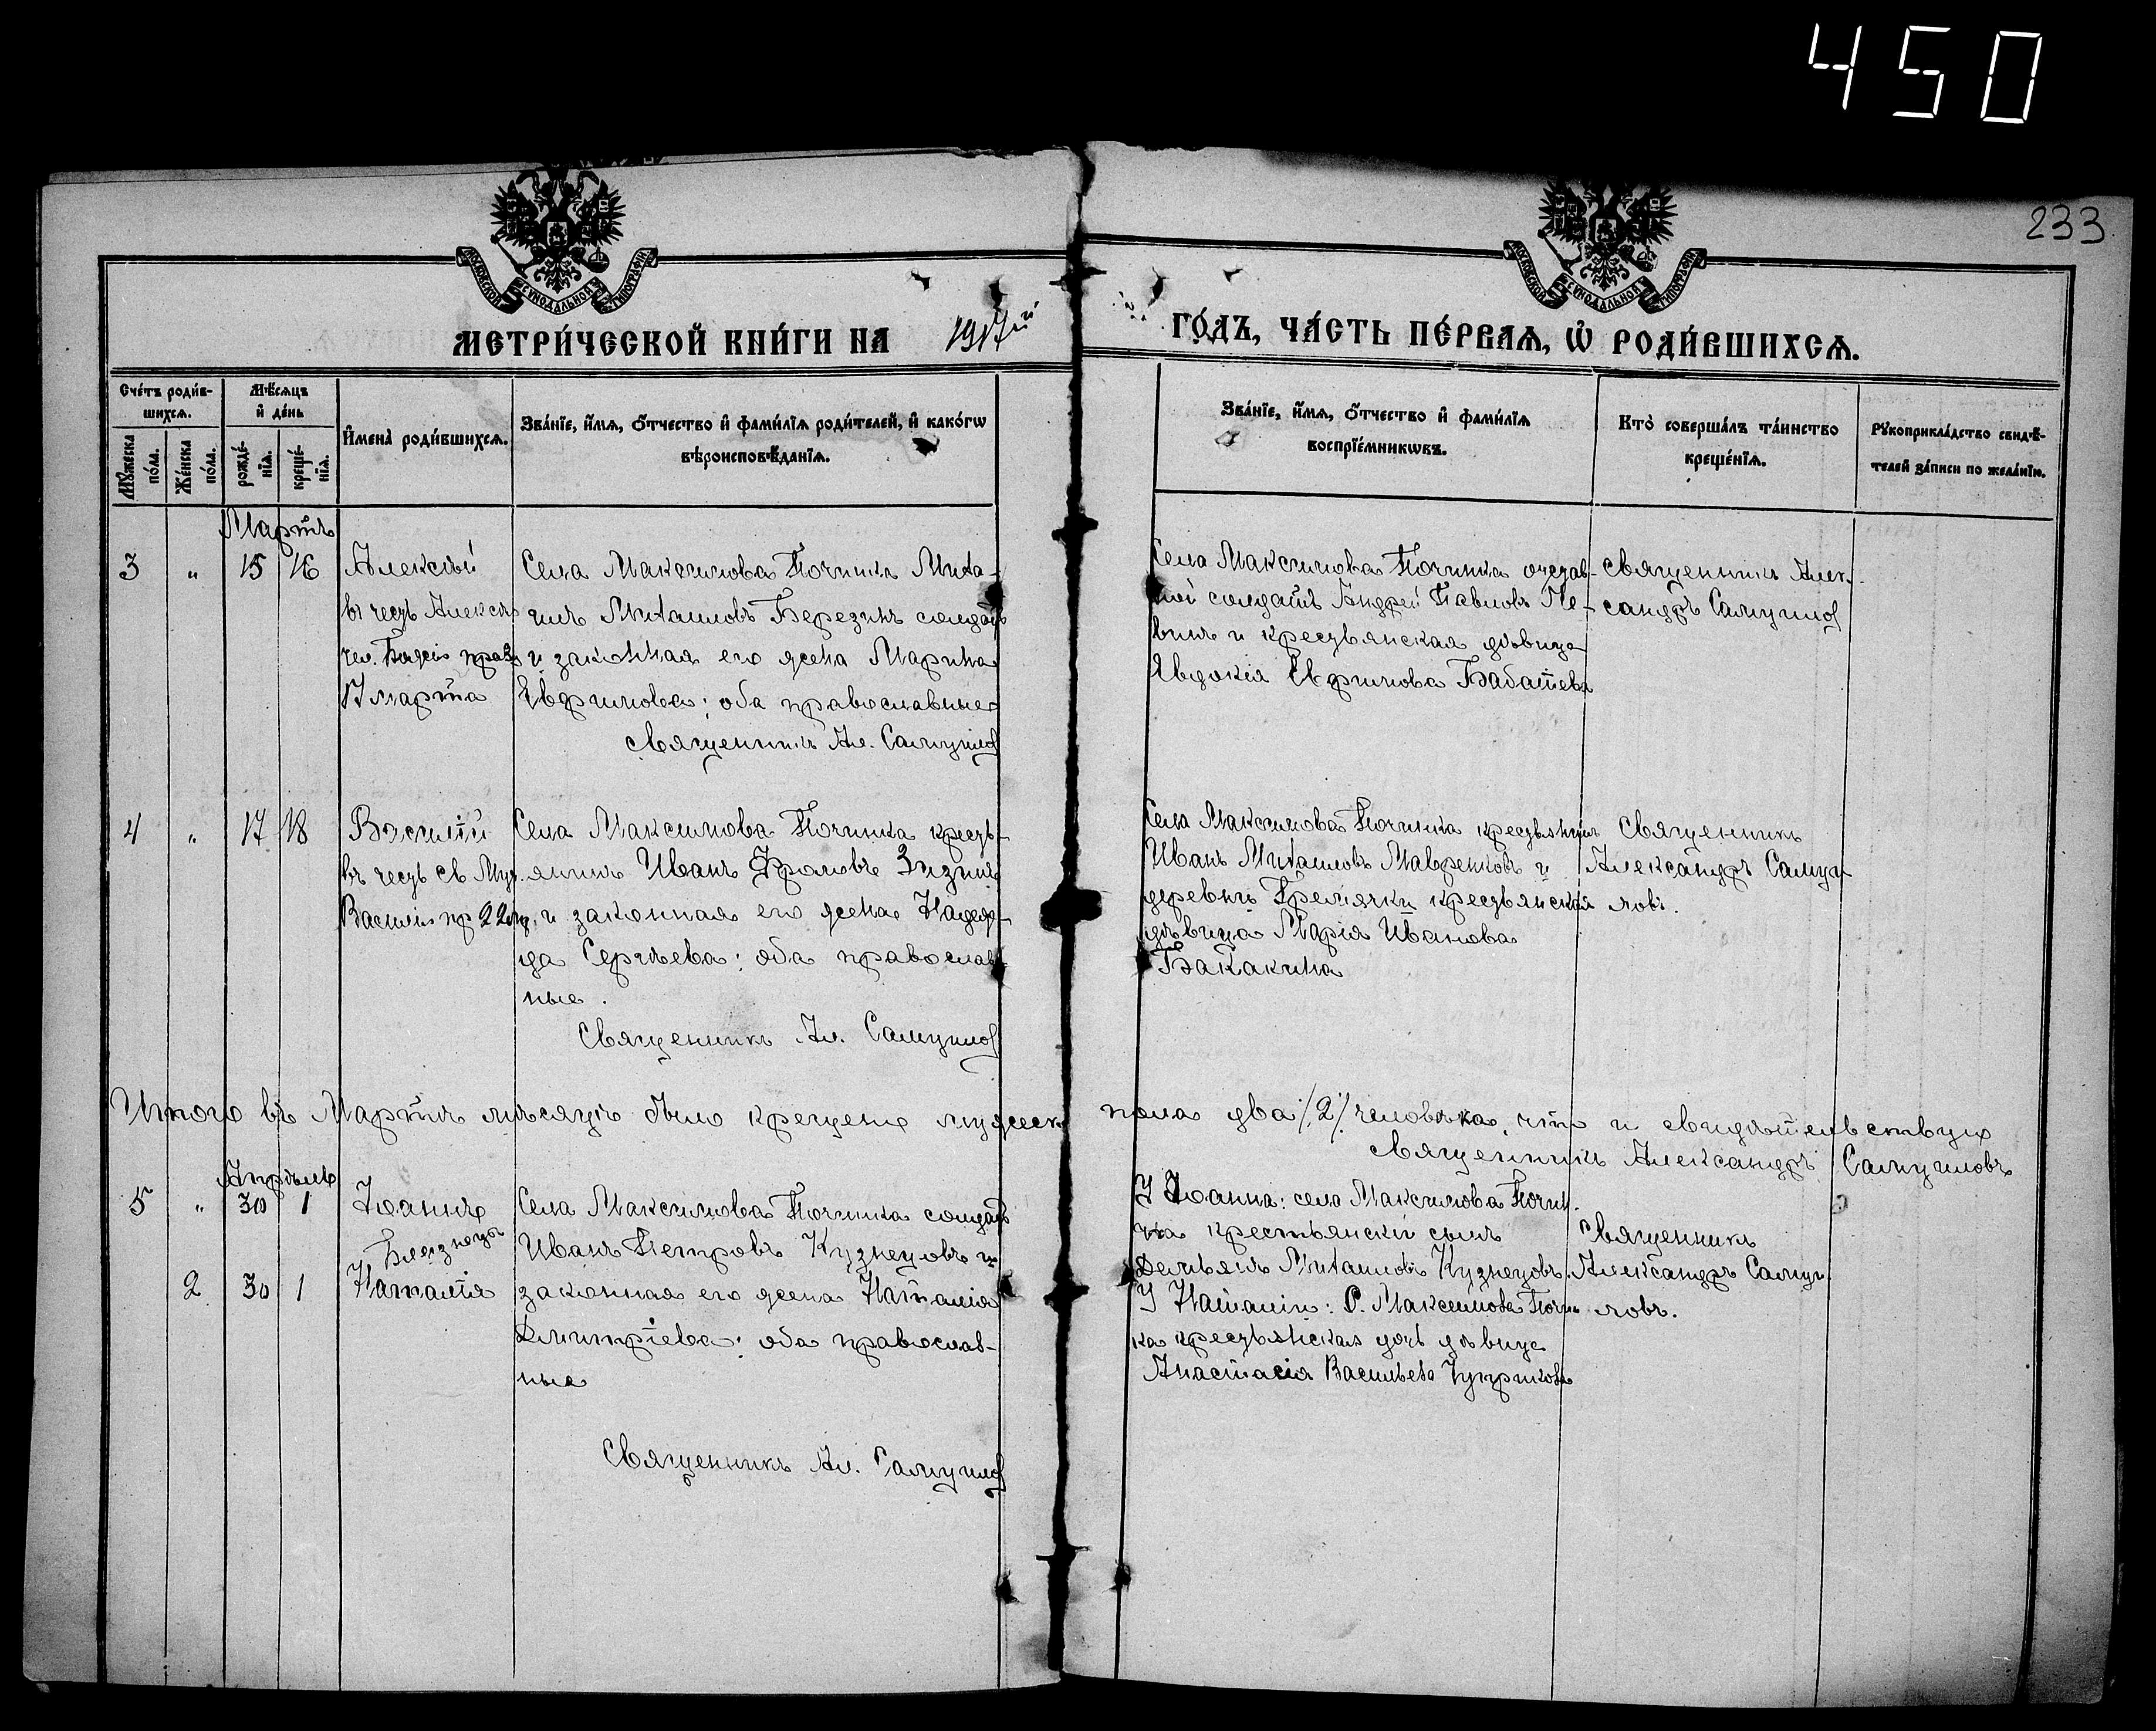 450
233
МОСКОВСКОЙ СУНОДАЛЬНОЙ ТИПОГРАФІИ
МОСКОВСКОЙ СУНОДАЛЬНОЙ ТИПОГРАФІИ
МЕТРИ́ЧЕСКОЙ КНИ́ГИ НА 1917й ГО́ДЪ, ЧА́СТЬ ПЕ́РВАѦ, Ѡ҆ РОДИ́ВШИХСѦ.
Сче́тъ роди́в-
шихсѧ.
Мѣ́сѧцъ
и҆ де́нь
Мꙋ́жеска по́ла.
Же́нска по́ла.
рожде́-
нїѧ.
креще́-
нїѧ.
И҆мена̀ роди́вшихсѧ.
Зва́нїе, и҆́мѧ, ѻ҆́тчество и҆ фами́лїѧ роди́телей, и҆ како́гѡ
вѣроисповѣ́данїѧ.
Зва́нїе, и҆́мѧ, ѻ҆́тчество и҆ фами́лїѧ
воспрїе́мникѡвъ.
Кто̀ соверша́лъ та́инство
креще́нїѧ.
Рꙋкоприкла́дство свидѣ́-
телей за́писи по жела́нїю.
Мартъ
3 " 15 16
Алексѣй
въ честь Алексѣя
чел. Божія празд
17 марта
Села Максимова Починка Миха-
илъ Михаиловъ Березинъ солдатъ
и законная его жена Марина
Евфимова; оба православные
Священникъ Ал. Самуилов
Села Максимова Починка
солдатъ Андрей Павловъ Ле-
винъ и крестьянская дѣвица
Евдокія Евфимова
Священникъ Алек-
сандръ Самуилов
4 " 17 18
Василій
въ честь св Муч.
Василія пр 22 мр.
Села Максимова Починка кресть-
янинъ Иванъ Фроловъ Зизинъ
и законная его жена Надеж-
да Сергѣева; оба православ-
ные.
Священникъ Ал. Самуилов
Села Максимова Починка крестьянинъ
Иванъ Михаиловъ Лавренковъ и
деревни Гремячки крестьянская
дѣвица Марія Иванова
Бакакина
Священникъ
Александръ Самуи-
ловъ.
Итого въ Мартѣ мѣсяцѣ было крещено мужеск пола два /2/ человѣка, что и свидѣтельствую
Священникъ Александръ Самуиловъ
Апрѣль
5 " 30 1
Іоаннъ
Близнецы
2 30 1
Наталія
Села Максимова Починка солдатъ
Иванъ Петровъ Кузнецовъ и
законная его жена Наталія
Димитріева; оба православ-
ные
Священникъ Ал. Самуилов
У Іоанна: села Максимова Почин-
ка крестьянскій сынъ
Демьянъ Михаиловъ Кузнецовъ.
У Наталіи: С. Максимова Почин
ка крестьянская дочь дѣвица
Анастасія Васильева
Священникъ
Александръ Самуи-
ловъ.